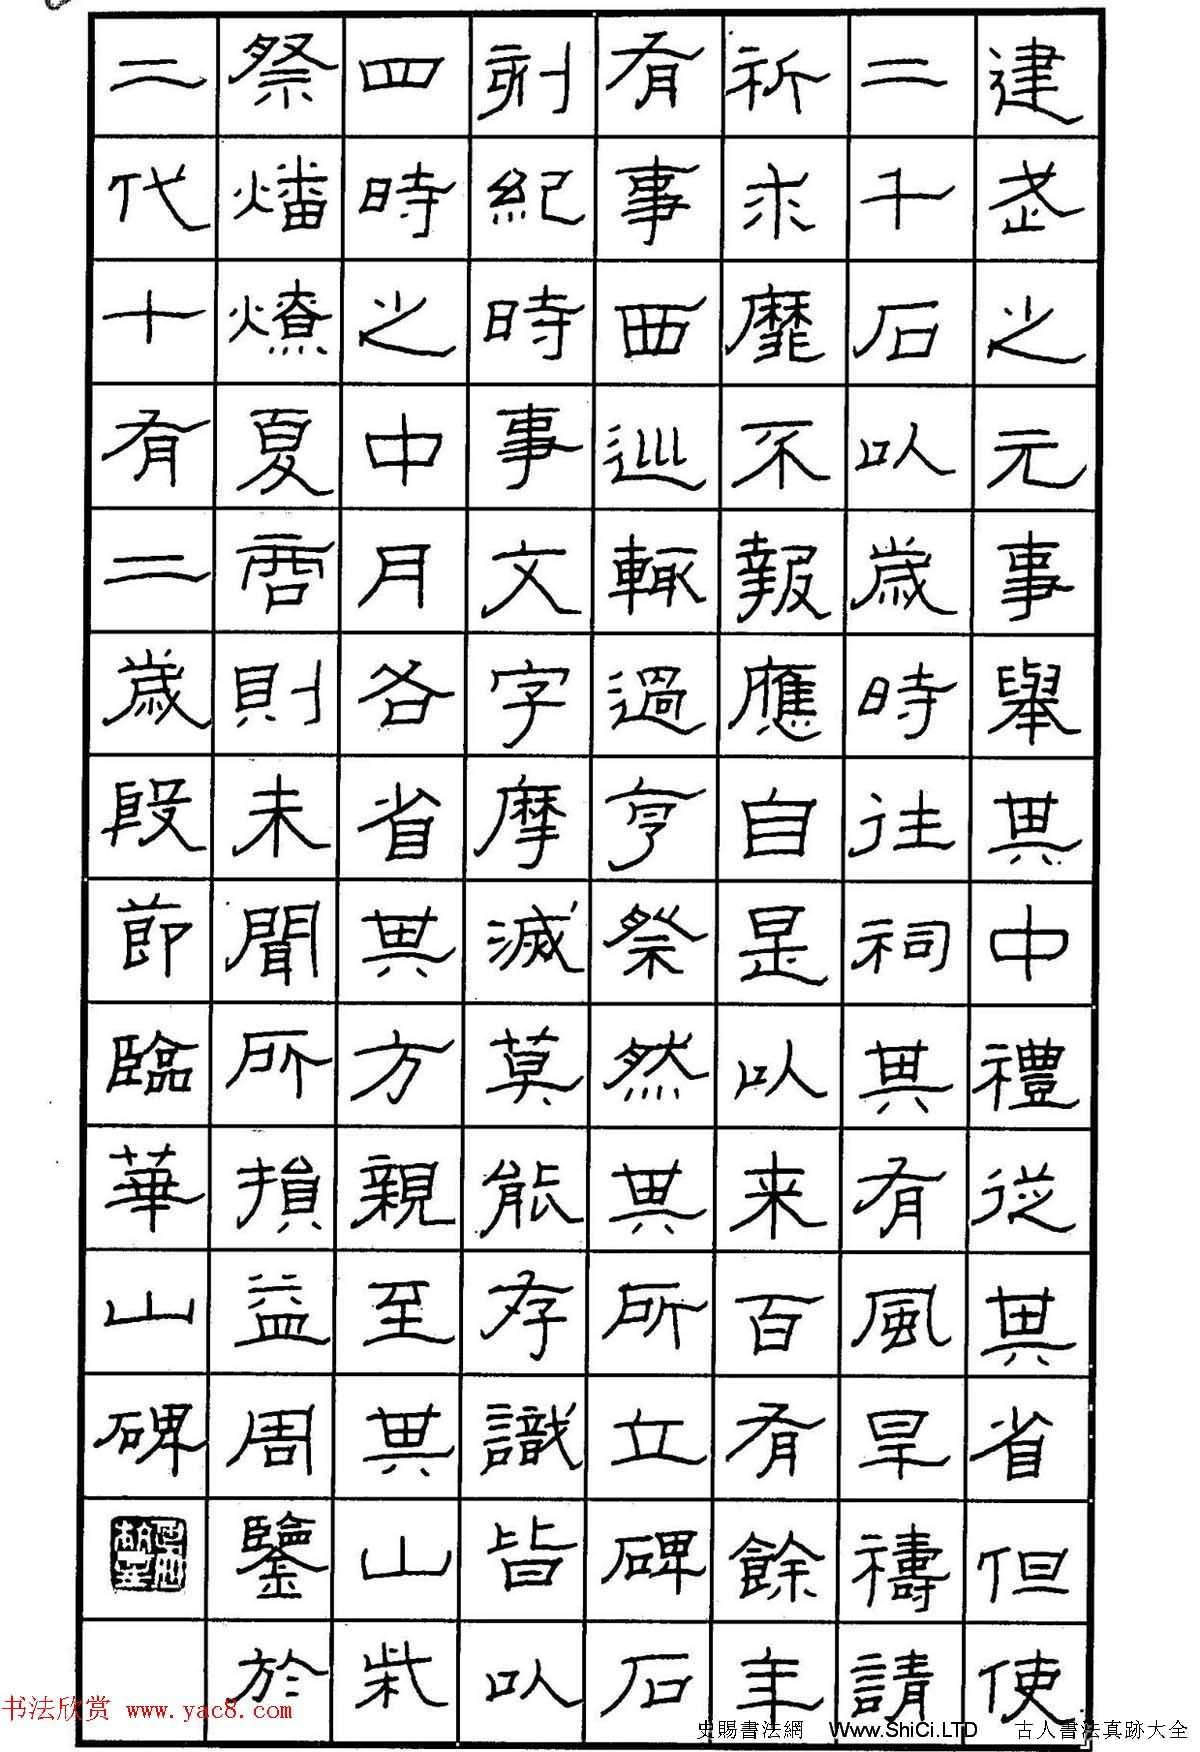 建武之元事舉其中禮從其省但使
二千石以歲時往祠其有風旱禱請
祈求靡不報應自是以来百有餘年
有事西巡輒過亨祭然其所立碑石
刻紀時事文字摩滅莫能存識皆以
四時之中月各省其方親至其山柴
祭燔燎夏商則未聞所損益周鑒於
二代十有二歲段節臨華山碑
书法欣赏 www.yac8.com
史賜書法網 Www.ShiCi.LTD 古人書法真跡大全